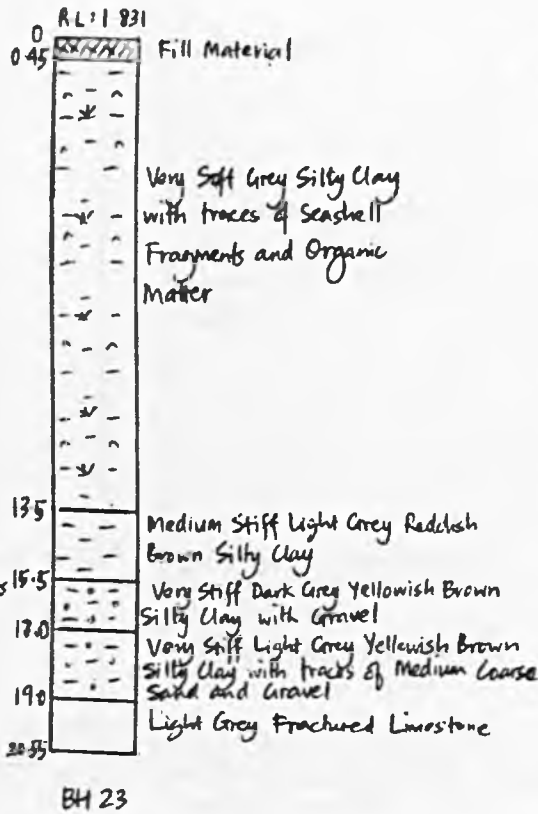 RL: 1 831
0
0.45
Fill Material
Very Soft Grey Silty Clay
with traces of Seashell
Fragments and Organic
Matter
13.5
Medium Stiff Light Grey Reddish
Brown Silty Clay
15.5
Very Stiff Dark Grey Yellowish Brown
Silty Clay with Gravel
17.0
Very Stiff Light Grey Yellowish Brown
Silty Clay with traces of Medium Coarse
Sand and Gravel
19.0
Light Grey Fractured Limestone
20.55
BH 23